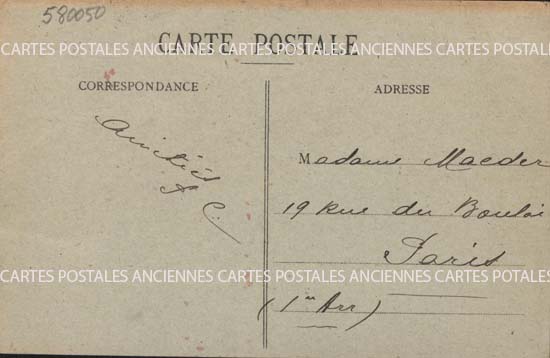 580050
CARTE POSTALE
CARTES POSTALES ANCIENNES CARTES POSTALES ANCIENNES CARTES POSTALES
CORRESPONDANCE
ADRESSE
Amitiés
J C.
Madame Maeder
19 Rue du Bouloi
Paris
CARTES POSTALES ANCIENNES CARTES POSTALES ANCIENNES CARTES POSTALES
(1er Arr)